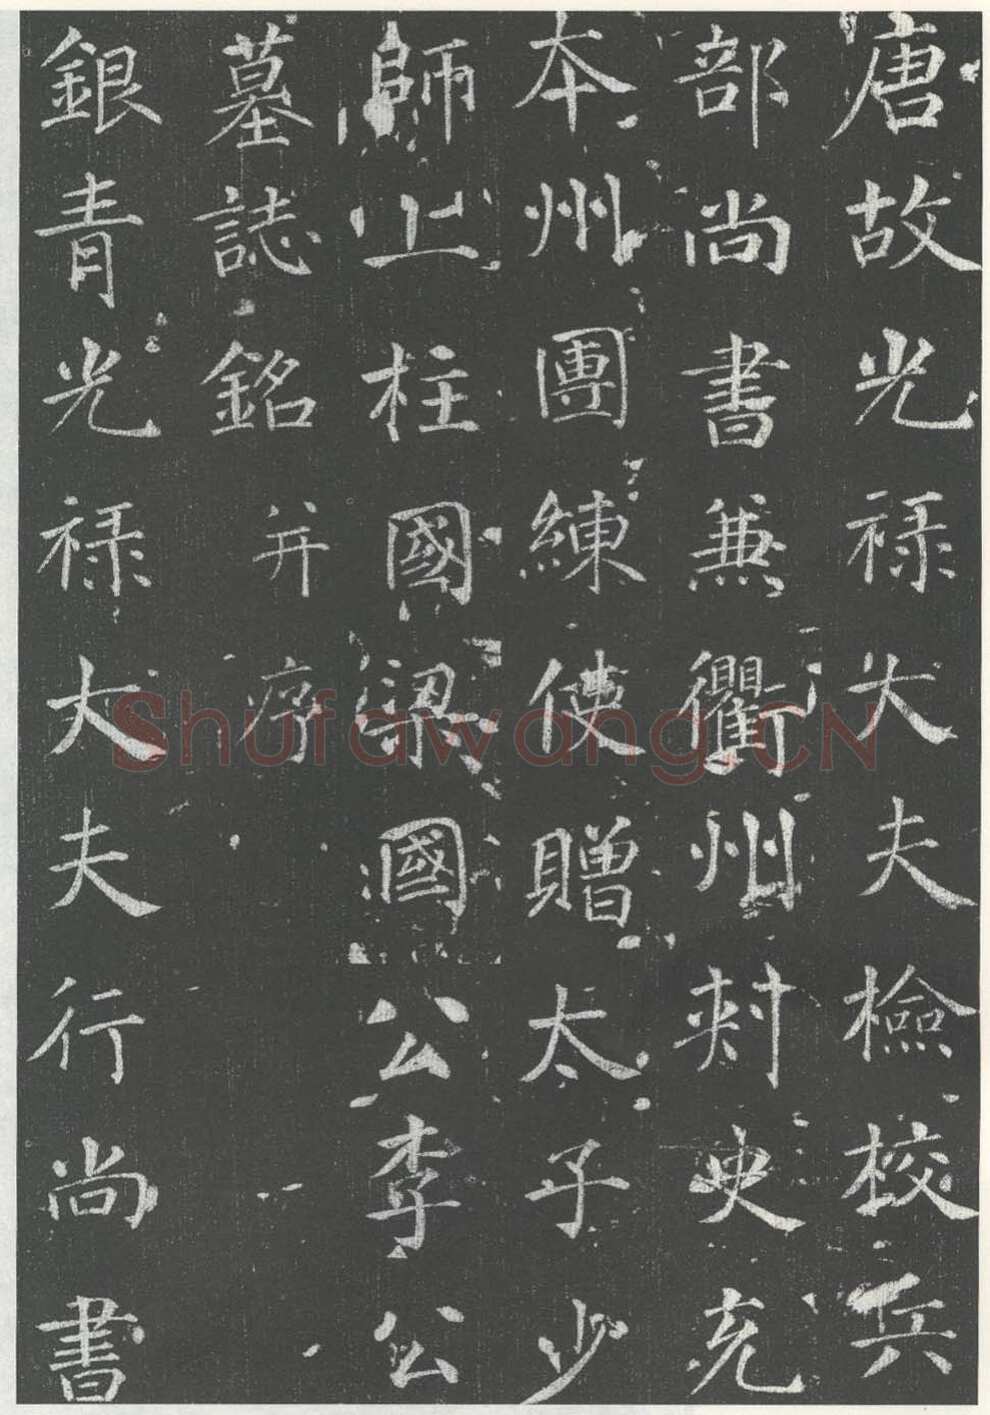 唐故光禄大夫檢校兵
部尚書兼衢州刾史充
本州團練使贈太子少
師上柱國梁國公李公
墓誌銘并序
銀青光禄大夫行尚書
Shufawang.CN